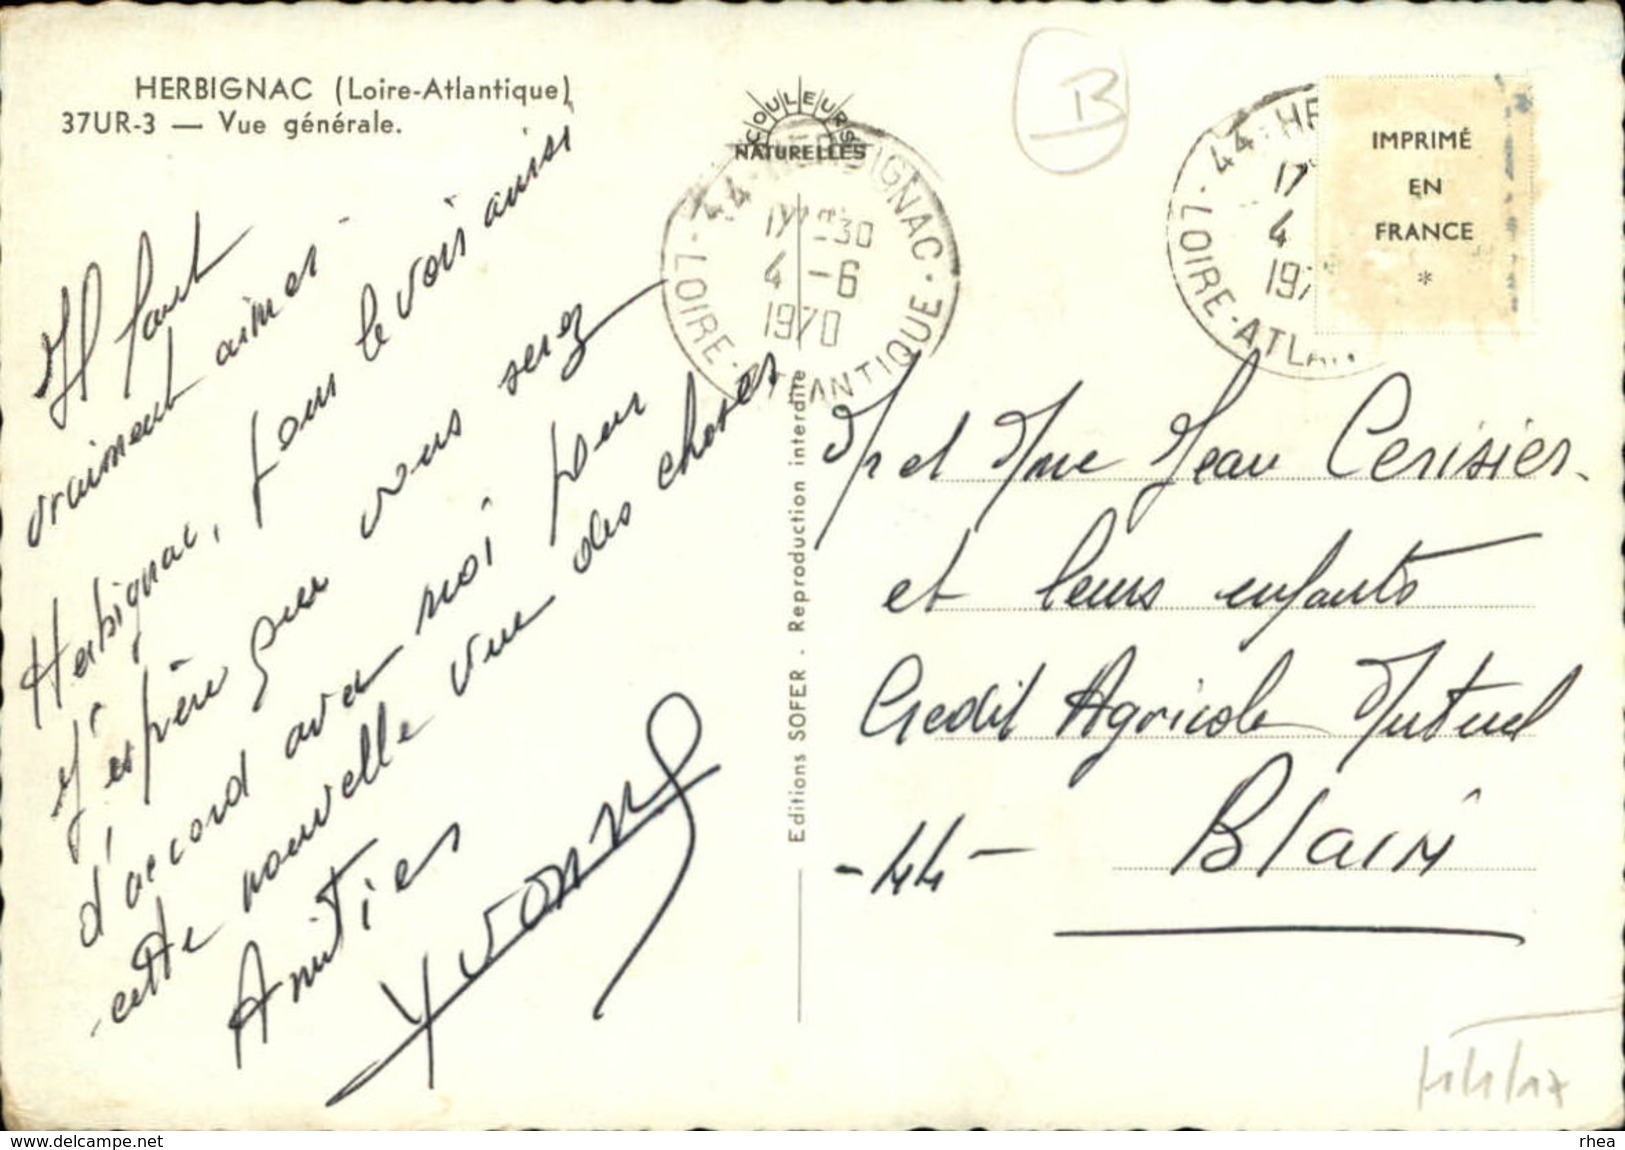 HERBIGNAC (Loire-Atlantique)
37UR-3 — Vue générale.
COULEURS
NATURELLES
Il faut
vraiment aimer
Herbignac, pour le voir ainsi
J'espère que vous serez
d'accord avec moi pour
cette nouvelle vue des choses
Amitiés
Yvonne
44-HERBIGNAC
17H-30
4-6
1970
LOIRE-ATLANTIQUE
Editions SOFER . Reproduction interdite
B
44-HE
17
4
197
LOIRE-ATLAN
IMPRIMÉ
EN
FRANCE
*
Mr et Mme Jean Cerisier
et leurs enfants
Credit Agricole Mutuel
Blain
-44-
rhea